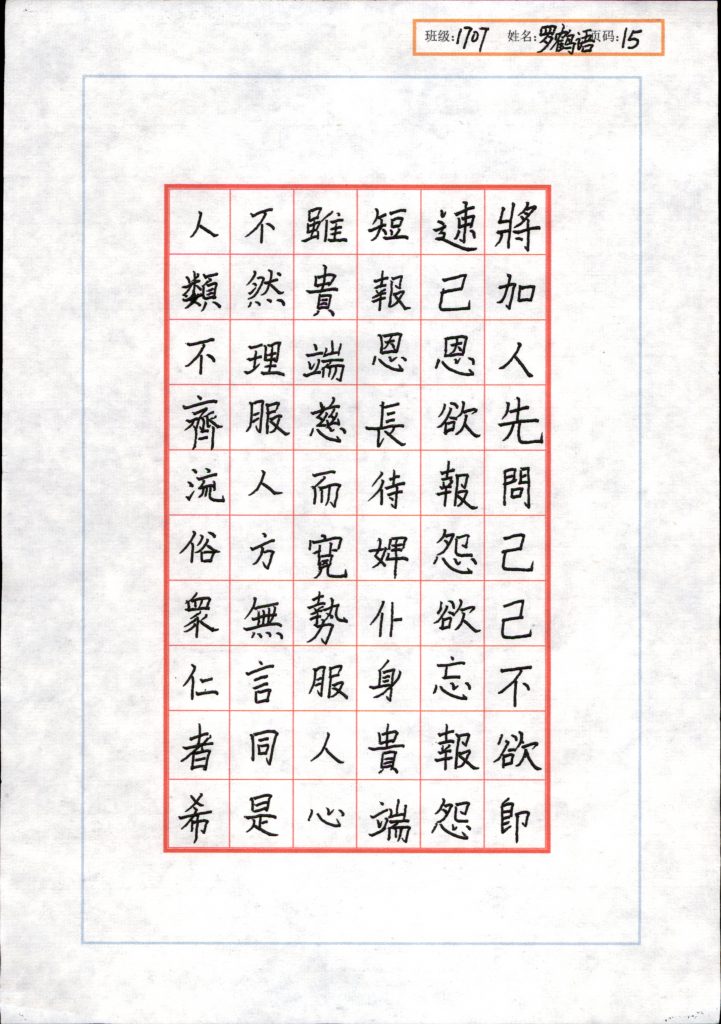 班级:1707 姓名:罗鹤语 页码:15
將加人先問己己不欲即
速己恩欲報怨欲忘報怨
短報恩長待婢仆身貴端
雖貴端慈而寬勢服人心
不然理服人方無言同是
人類不齊流俗眾仁者希